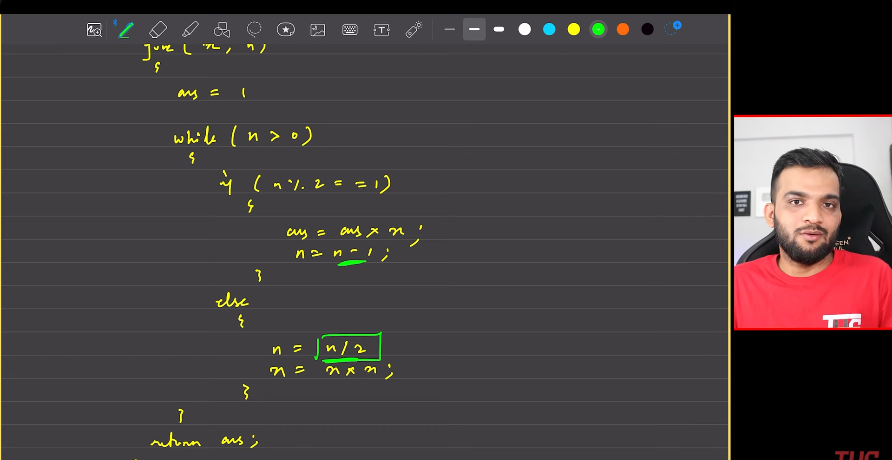 func ( x, n)
{
ans = 1
while ( n > 0)
{
if ( n % 2 = = 1)
{
ans = ans * x ;
n = n - 1 ;
}
else
{
n = n / 2
x = x * x ;
}
}
return ans ;
TUF